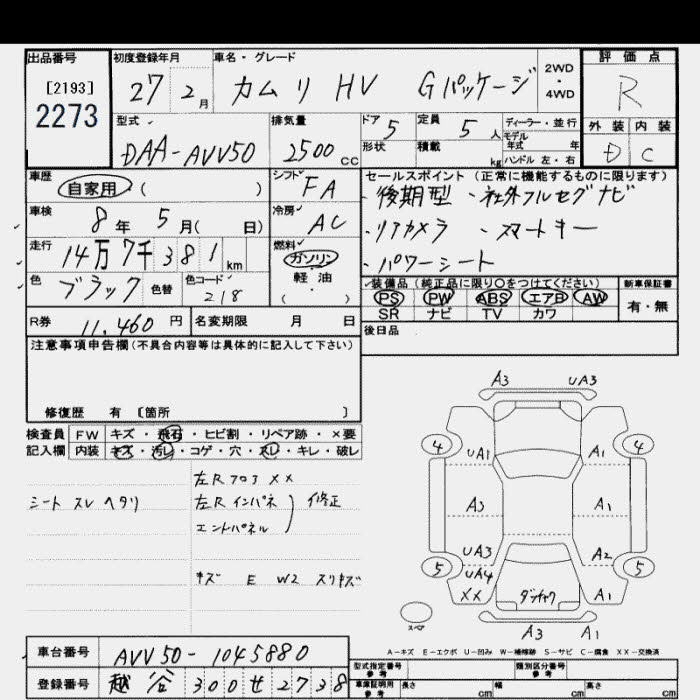 出品番号
[2193]
2273
初度登録年月
27 2月
車名・グレード
カムリ HV Gパッケージ
2WD
・
4WD
評価点
R
外装 内装
D C
型式
DAA-AVV50
排気量
2500cc
ドア 5
形状
定員 5人
積載 kg
ディーラー・並行
モデル
年式 年
ハンドル 左・右
車歴
自家用 ( )
シフト
FA
車検
8年5月( 日)
冷房
AC
走行
14万7千381km
燃料
ガソリン
軽油
( )
色
ブラック 色替
色コード
218
R券 11,460円
名変期限 月 日
セールスポイント(正常に機能するものに限ります)
・後期型 ・社外フルセグナビ
・リアカメラ ・スマートキー
・パワーシート
装備品(純正品に限り○をつけてください)
PS PW ABS エアB AW
SR ナビ TV カワ
新車保証書
有・無
後日品
注意事項申告欄(不具合内容等は具体的に記入して下さい)
修復歴 有 [箇所 ]
検査員 FW キズ・飛石・ヒビ割・リペア跡・×要
記入欄 内装 キズ・汚レ・コゲ・穴・スレ・キレ・破レ
シート スレ ヘタリ
左Rフロア XX
左R インパネ
エンドパネル
修正
キズ E W2 スリキズ
A3 UA3
4 4
UA1 A1
A3 A1
UA3 A2
5 5
UA4
XX A1
ダンチャク
スペア
A3 A1
A-キズ E-エクボ U-凹み W-補修跡 S-サビ C-腐食 XX-交換済
車台番号 AVV50-1045880
登録番号 越谷 300 せ 2738
型式指定番号
参考
類別区分番号
参考
車庫証明用
参考
長さ cm 幅 cm 高さ cm